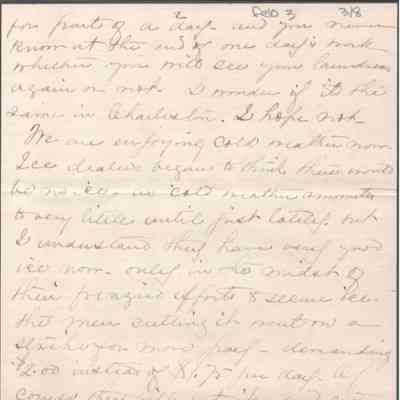 Feb 3 3/8
for parts of a day - and you never
know at the end of one day's work
whether you will see your laundress
again or not. I wonder if it's the
same in Charleston. I hope not.
We are enjoying cold weather now
Ice dealers began to think there would
be no ice, as cold weather amounted
to very little until just lately, but
I understand they have very good
ice now - only in the midst of
their frenzied efforts to secure ice
the men cutting it went on a
strike for more pay - demanding
$2.00 instead of $1.75 per day.